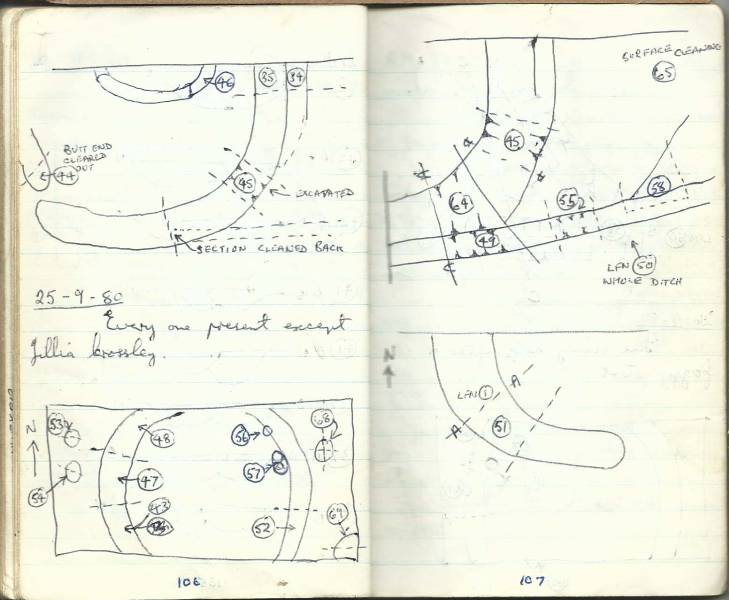 46
35
34
BUTT END
CLEARED
OUT
44
45
EXCAVATED
SECTION CLEANED BACK
25-9-80
Every one present except
Jillia Crossley.
53
N
54
48
47
43
56
57
52
68
69
106
SURFACE CLEANING
65
45
64
49
55
58
LFN 50
WHOLE DITCH
N
LFN 1
A
A
51
107